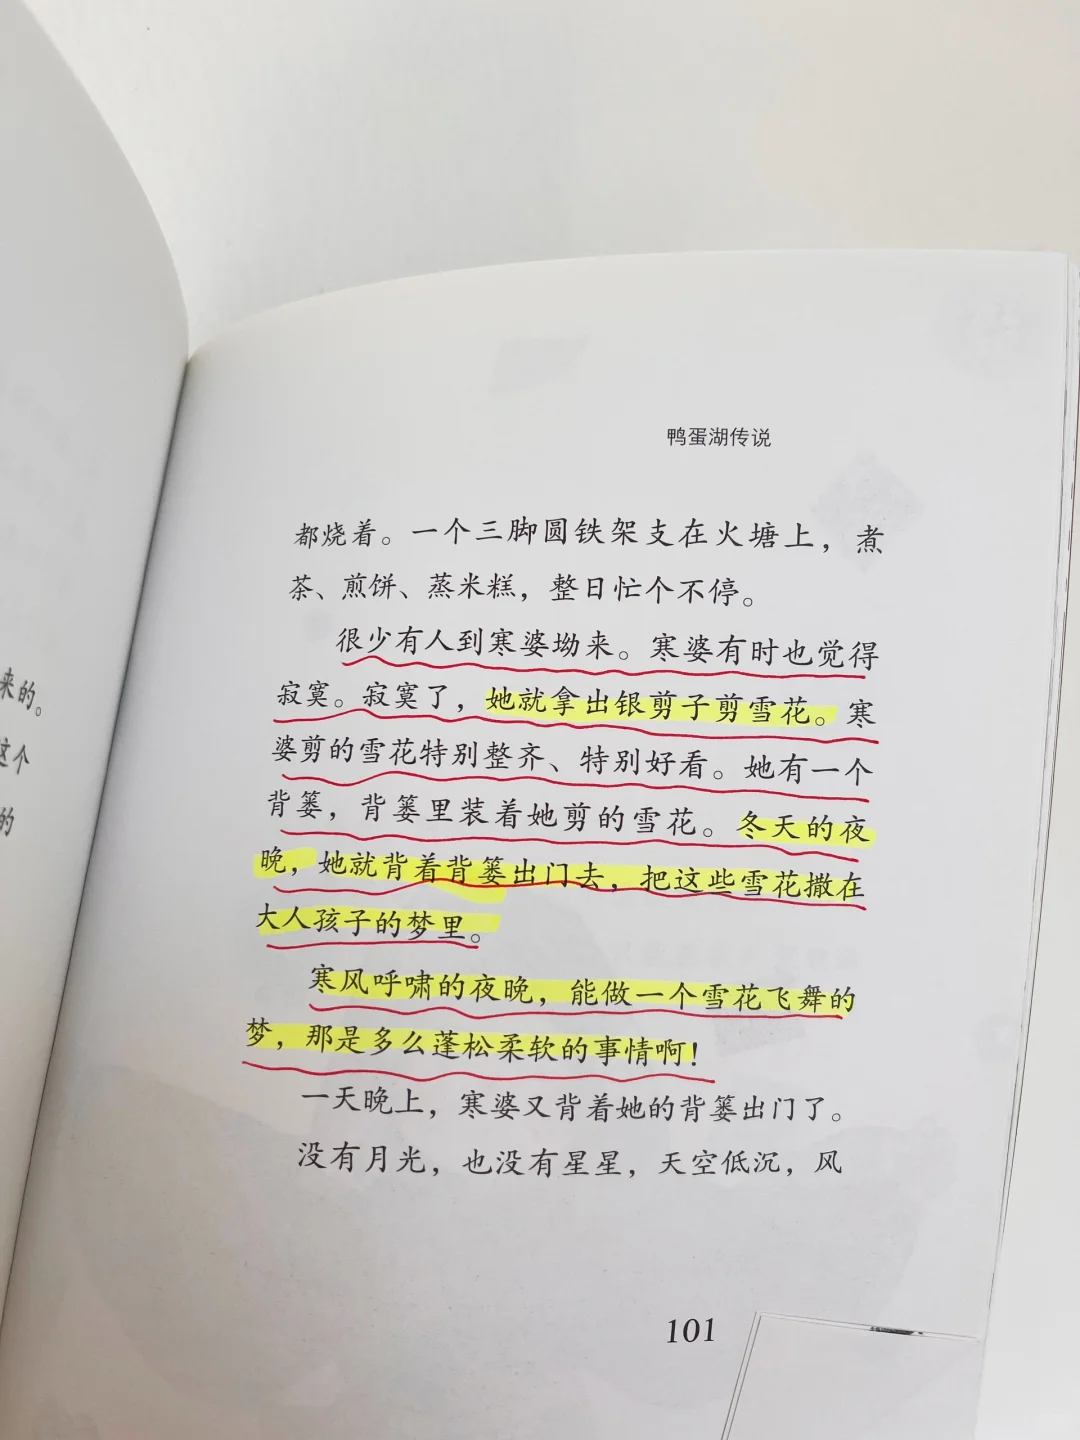 来的。
这个
的
鸭蛋湖传说
都烧着。一个三脚圆铁架支在火塘上，煮
茶、煎饼、蒸米糕，整日忙个不停。
很少有人到寒婆坳来。寒婆有时也觉得
寂寞。寂寞了，她就拿出银剪子剪雪花。寒
婆剪的雪花特别整齐、特别好看。她有一个
背篓，背篓里装着她剪的雪花。冬天的夜
晚，她就背着背篓出门去，把这些雪花撒在
大人孩子的梦里。
寒风呼啸的夜晚，能做一个雪花飞舞的
梦，那是多么蓬松柔软的事情啊！
一天晚上，寒婆又背着她的背篓出门了。
没有月光，也没有星星，天空低沉，风
101